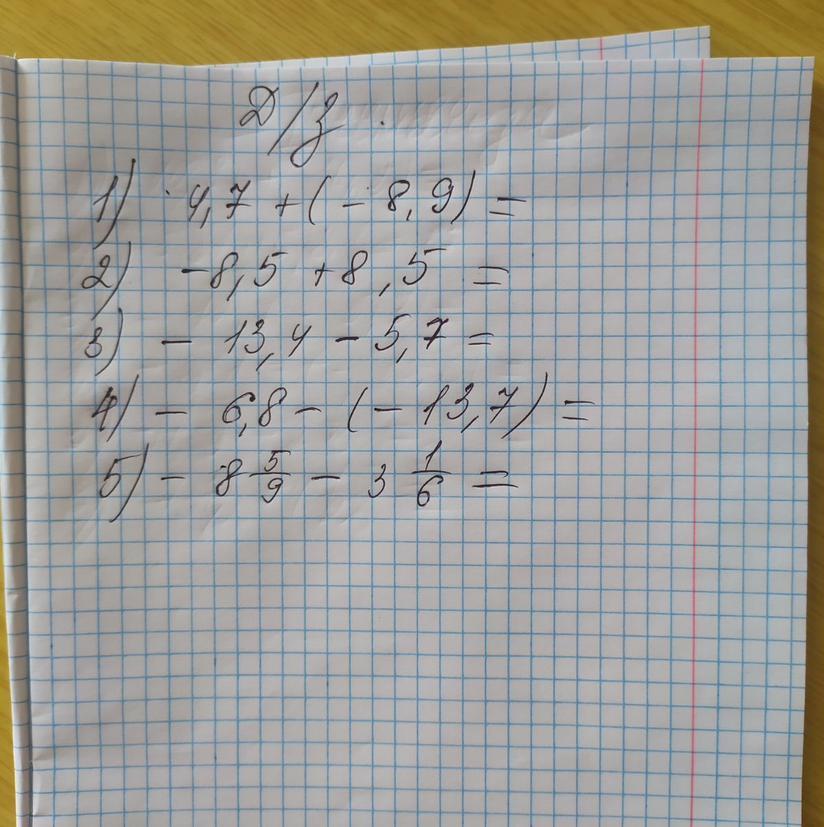 Д/з.
1) 4,7 + (- 8,9) =
2) -8,5 + 8,5 =
3) - 13,4 - 5,7 =
4) - 6,8 - (- 13,7) =
5) - 8 5/9 - 3 1/6 =